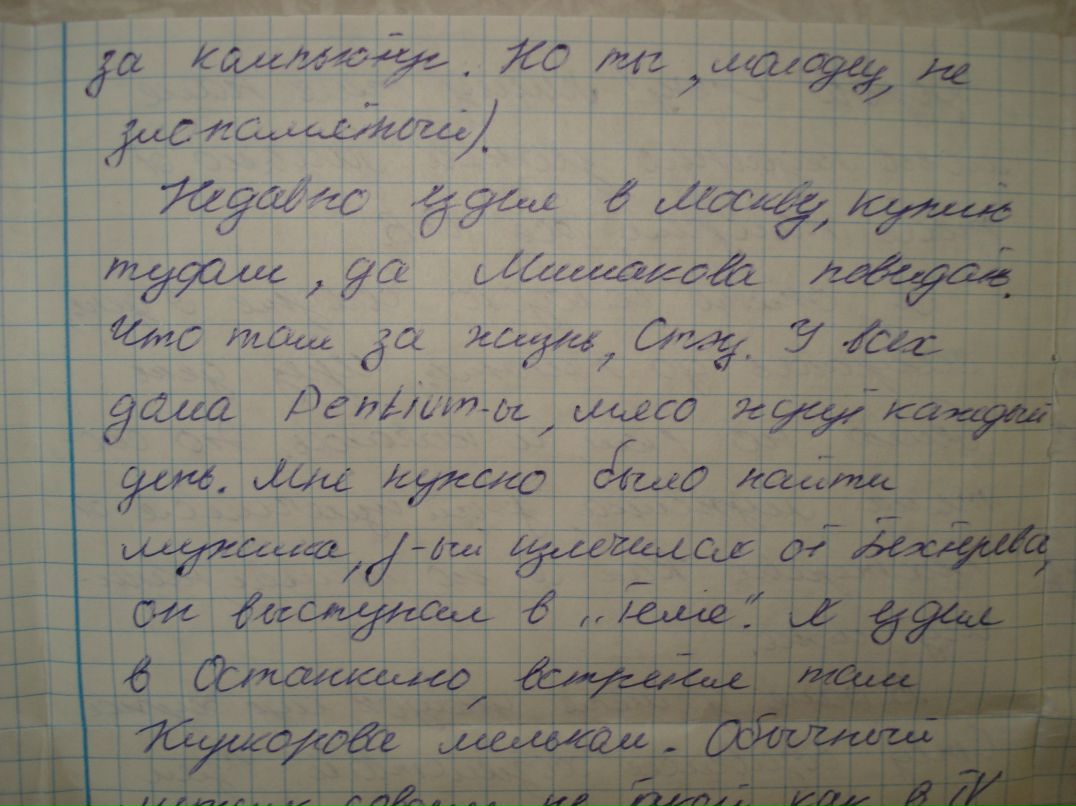 за компьютер. Но ты, молодец, не
злопамятный).
Недавно ездил в Москву, купить
туфли, да Мишакова повидать.
Что там за жизнь, Стж. У всех
дома Pentium-ы, мясо жрут каждый
день. Мне нужно было найти
мужика, j-ый излечился от Бехтерева,
он выступал в „Теме". Я ездил
в Останкино, встретил там
Киркорова мельком. Обычный
совсем не такой как в TV